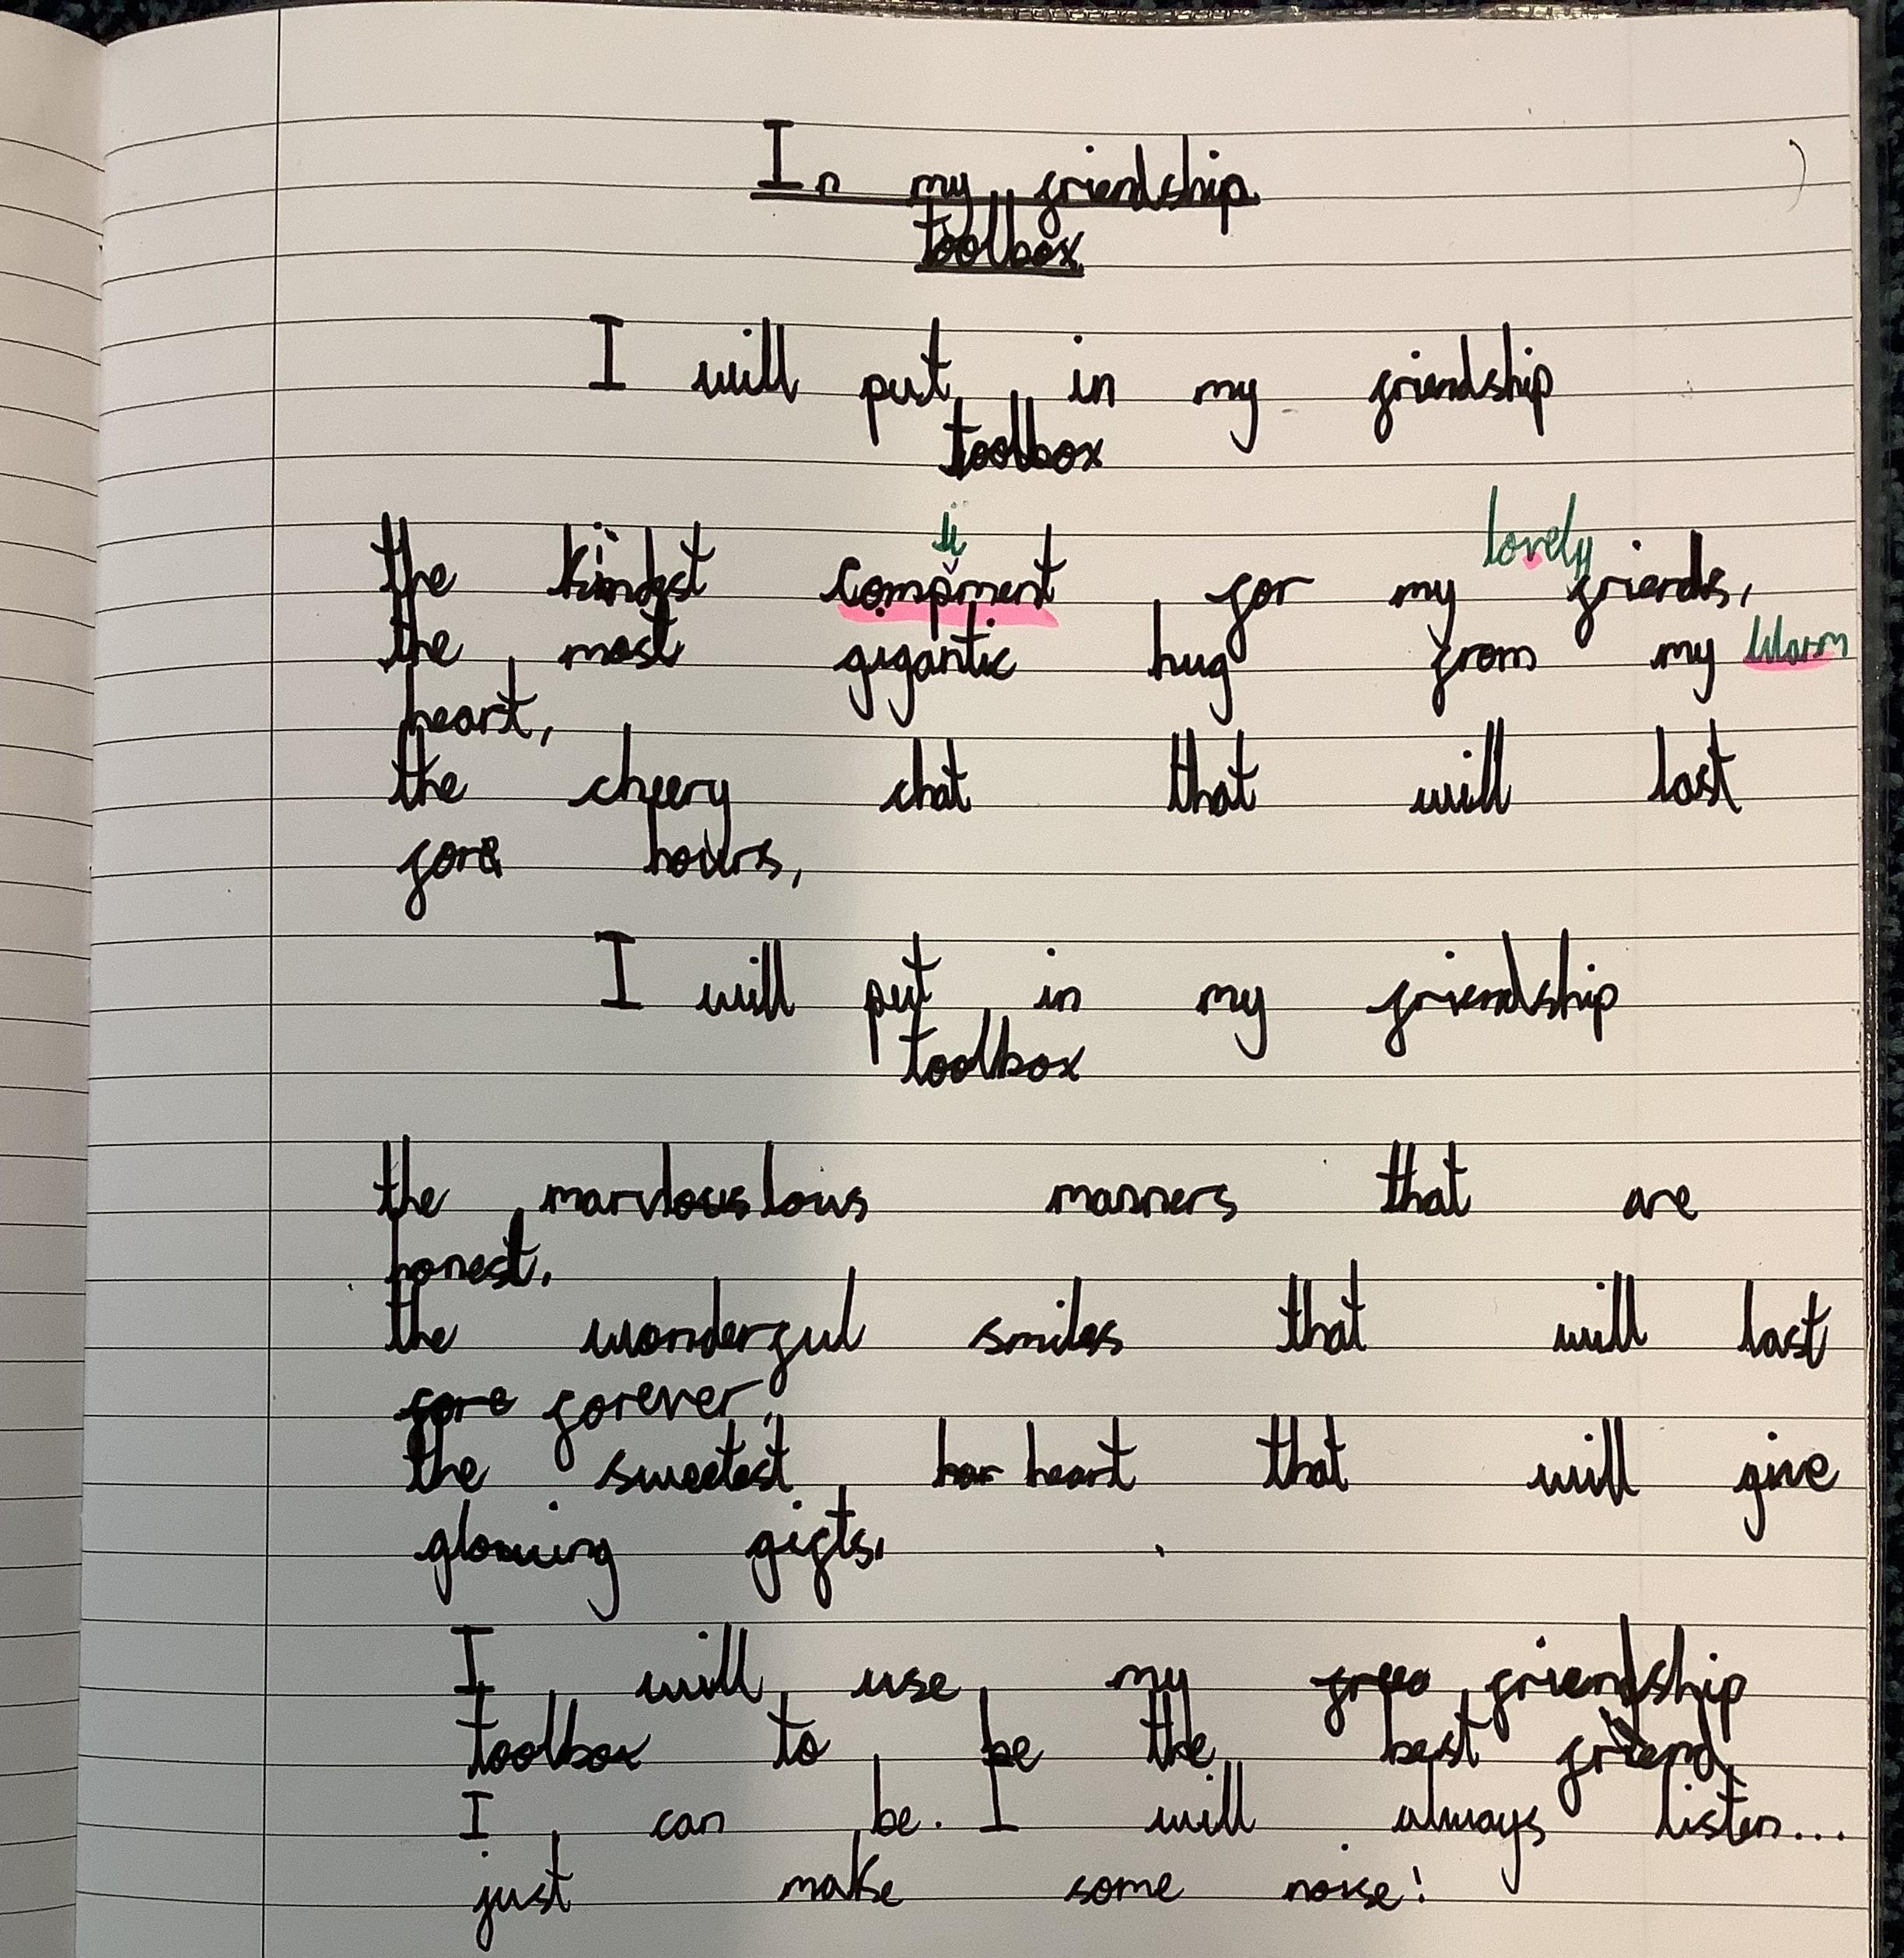 In my friendship
toolbox
I will put in my friendship
toolbox
li lovely
the kindest compment for my friends,
the most gigantic hug from my warm
heart,
the cheery chat that will last
fore hours,
I will put in my friendship
toolbox
the marvlouslous manners that are
honest,
the wonderful smiles that will last
fore forever,
the sweetest har heart that will give
glowing gifts,
I will use my friendship
toolbox to be the best friend
I can be. I will always listen...
just make some noise!